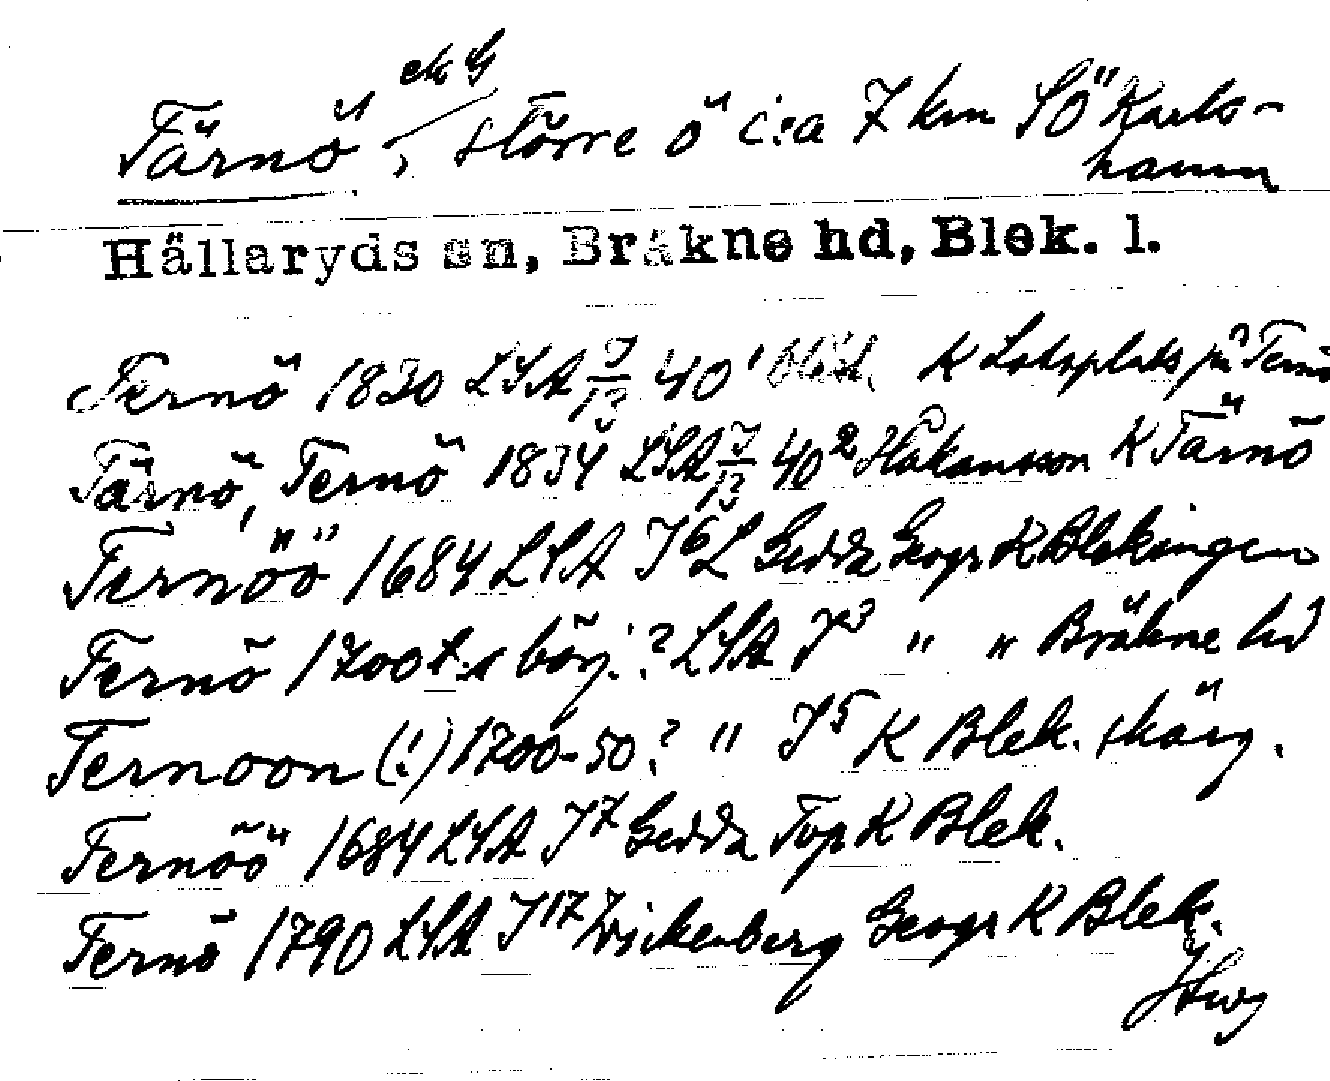 ek G
Tärnö, större ö c:a 7 km SÖ Karls-
hamn
Hällaryds sn, Bräkne hd, Blek. l.
Ternö 1830 LSA J/13 40¹ K Lotsplats på Ternö
Tärnö, Ternö 1834 LSA J/13 40² Håkansson K Tärnö
Ternöö 1684 LSA J⁶L Gedda Geogr K Blekingen
Ternö 1700t.s börj.? LSA J³ " " Bräkne hd
Ternoon (!) 1700-50? " J⁵ K Blek. skärg.
Ternöö 1684 LSA J⁷ Gedda Top K Blek.
Ternö 1790 LSA J¹⁷ Wickenberg Geogr K Blek.